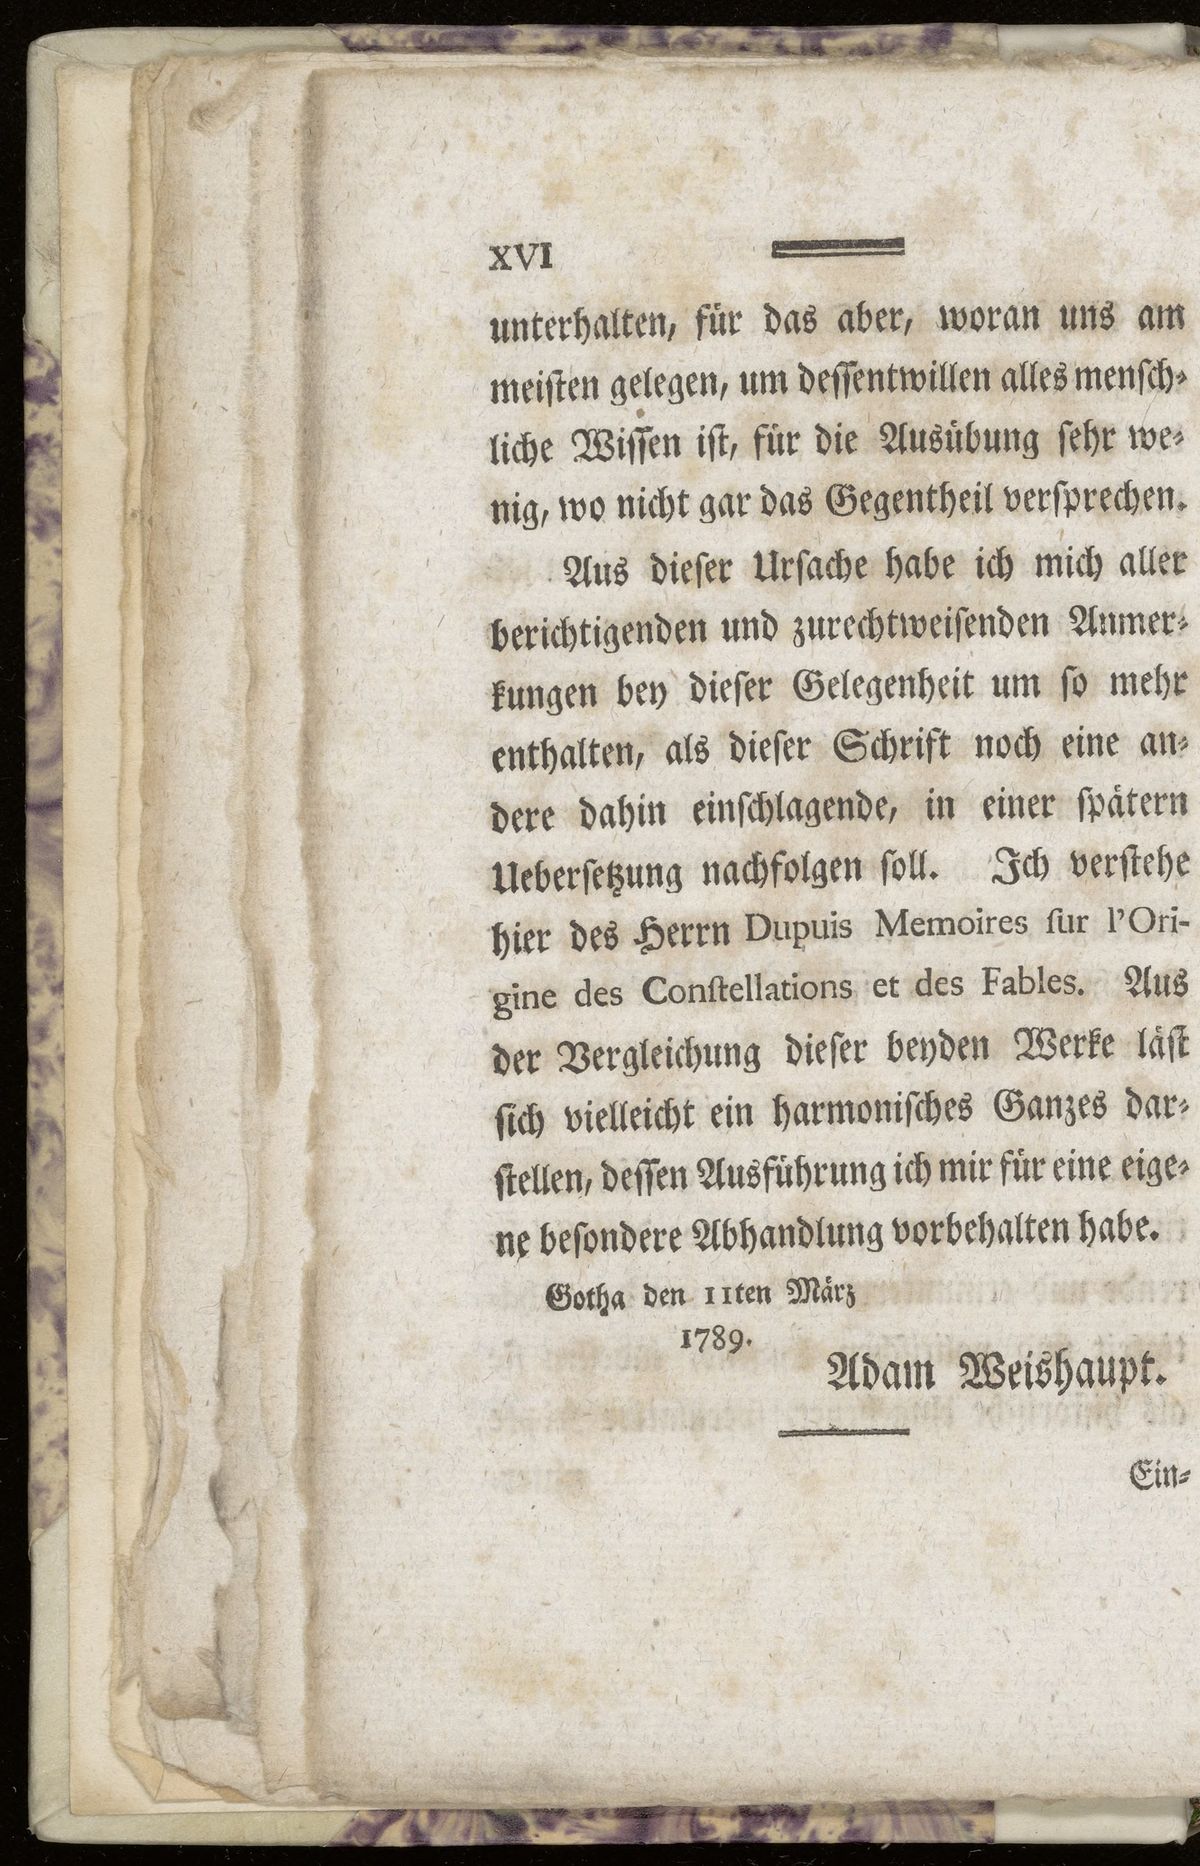 XVI
unterhalten, für das aber, woran uns am
meiſten gelegen, um deſſentwillen alles menſch⸗
liche Wiſſen iſt, für die Ausübung ſehr we⸗
nig, wo nicht gar das Gegentheil verſprechen.
Aus dieſer Urſache habe ich mich aller
berichtigenden und zurechtweiſenden Anmer⸗
kungen bey dieſer Gelegenheit um ſo mehr
enthalten, als dieſer Schrift noch eine an⸗
dere dahin einſchlagende, in einer ſpätern
Ueberſetzung nachfolgen ſoll. Ich verſtehe
hier des Herrn Dupuis Memoires ſur l'Ori-
gine des Conſtellations et des Fables. Aus
der Vergleichung dieſer beyden Werke läſt
ſich vielleicht ein harmoniſches Ganzes dar⸗
ſtellen, deſſen Ausführung ich mir für eine eige⸗
ne beſondere Abhandlung vorbehalten habe.
Gotha den 11ten März
1789.
Adam Weishaupt.
Ein⸗